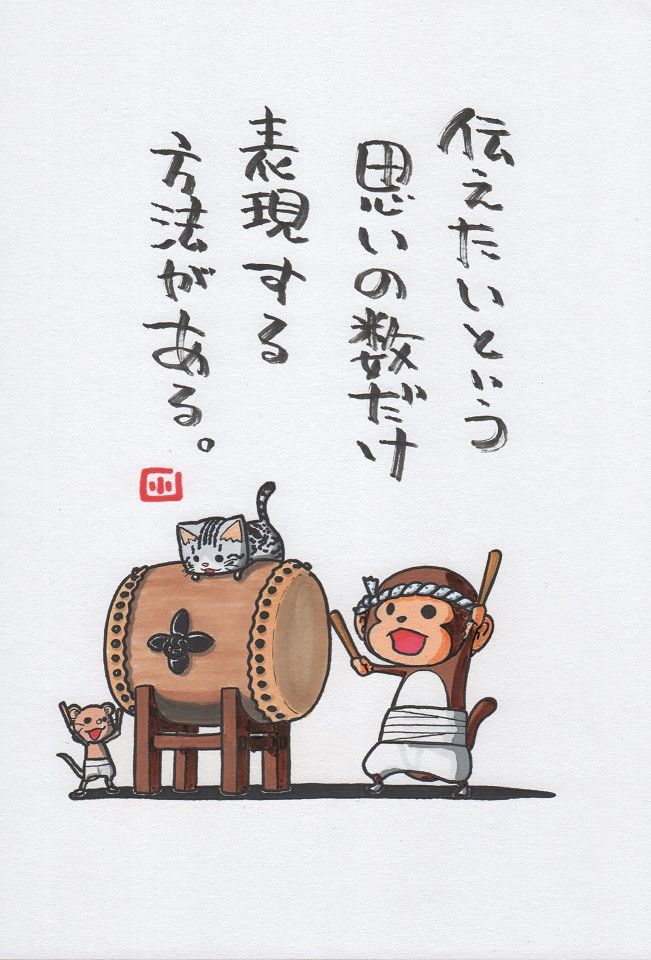 伝えたいという
思いの数だけ
表現する
方法がある。
小